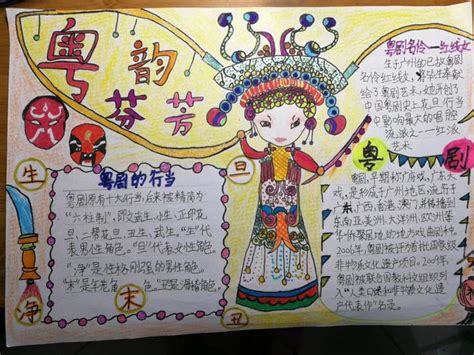 粤韵
芬芳
生
旦
净
末
丑
粤剧的行当
粤剧原有十大行当,后来被精简为
"六柱制",即文武生、小生、正印花
旦、二帮花旦、丑生、武生。"生"代
表男性角色。"旦"代表女性角色。
"净"是性格刚强的男性角色。
"末"是年老角色。丑是滑稽角色。
粤剧名伶—红线女
生于广州的已故粤剧
名伶红线女,毕生奉献
给了粤剧艺术,她开创了
中国粤剧史上花旦行当
中影响最大的唱腔
流派之一——红派
艺术
粤剧
粤剧,早期称广府戏、广东大
戏,是形成于广州地区,流行于
广东,广西、香港、澳门,并传播到
东南亚、美洲、大洋洲、欧洲等
华侨聚居地的地方戏曲剧种。
2006年,粤剧被评为首批国家级
非物质文化遗产项目。2009年,
粤剧被联合国教科文组织列
入"人类口头和非物质文化遗
产代表作"名录。